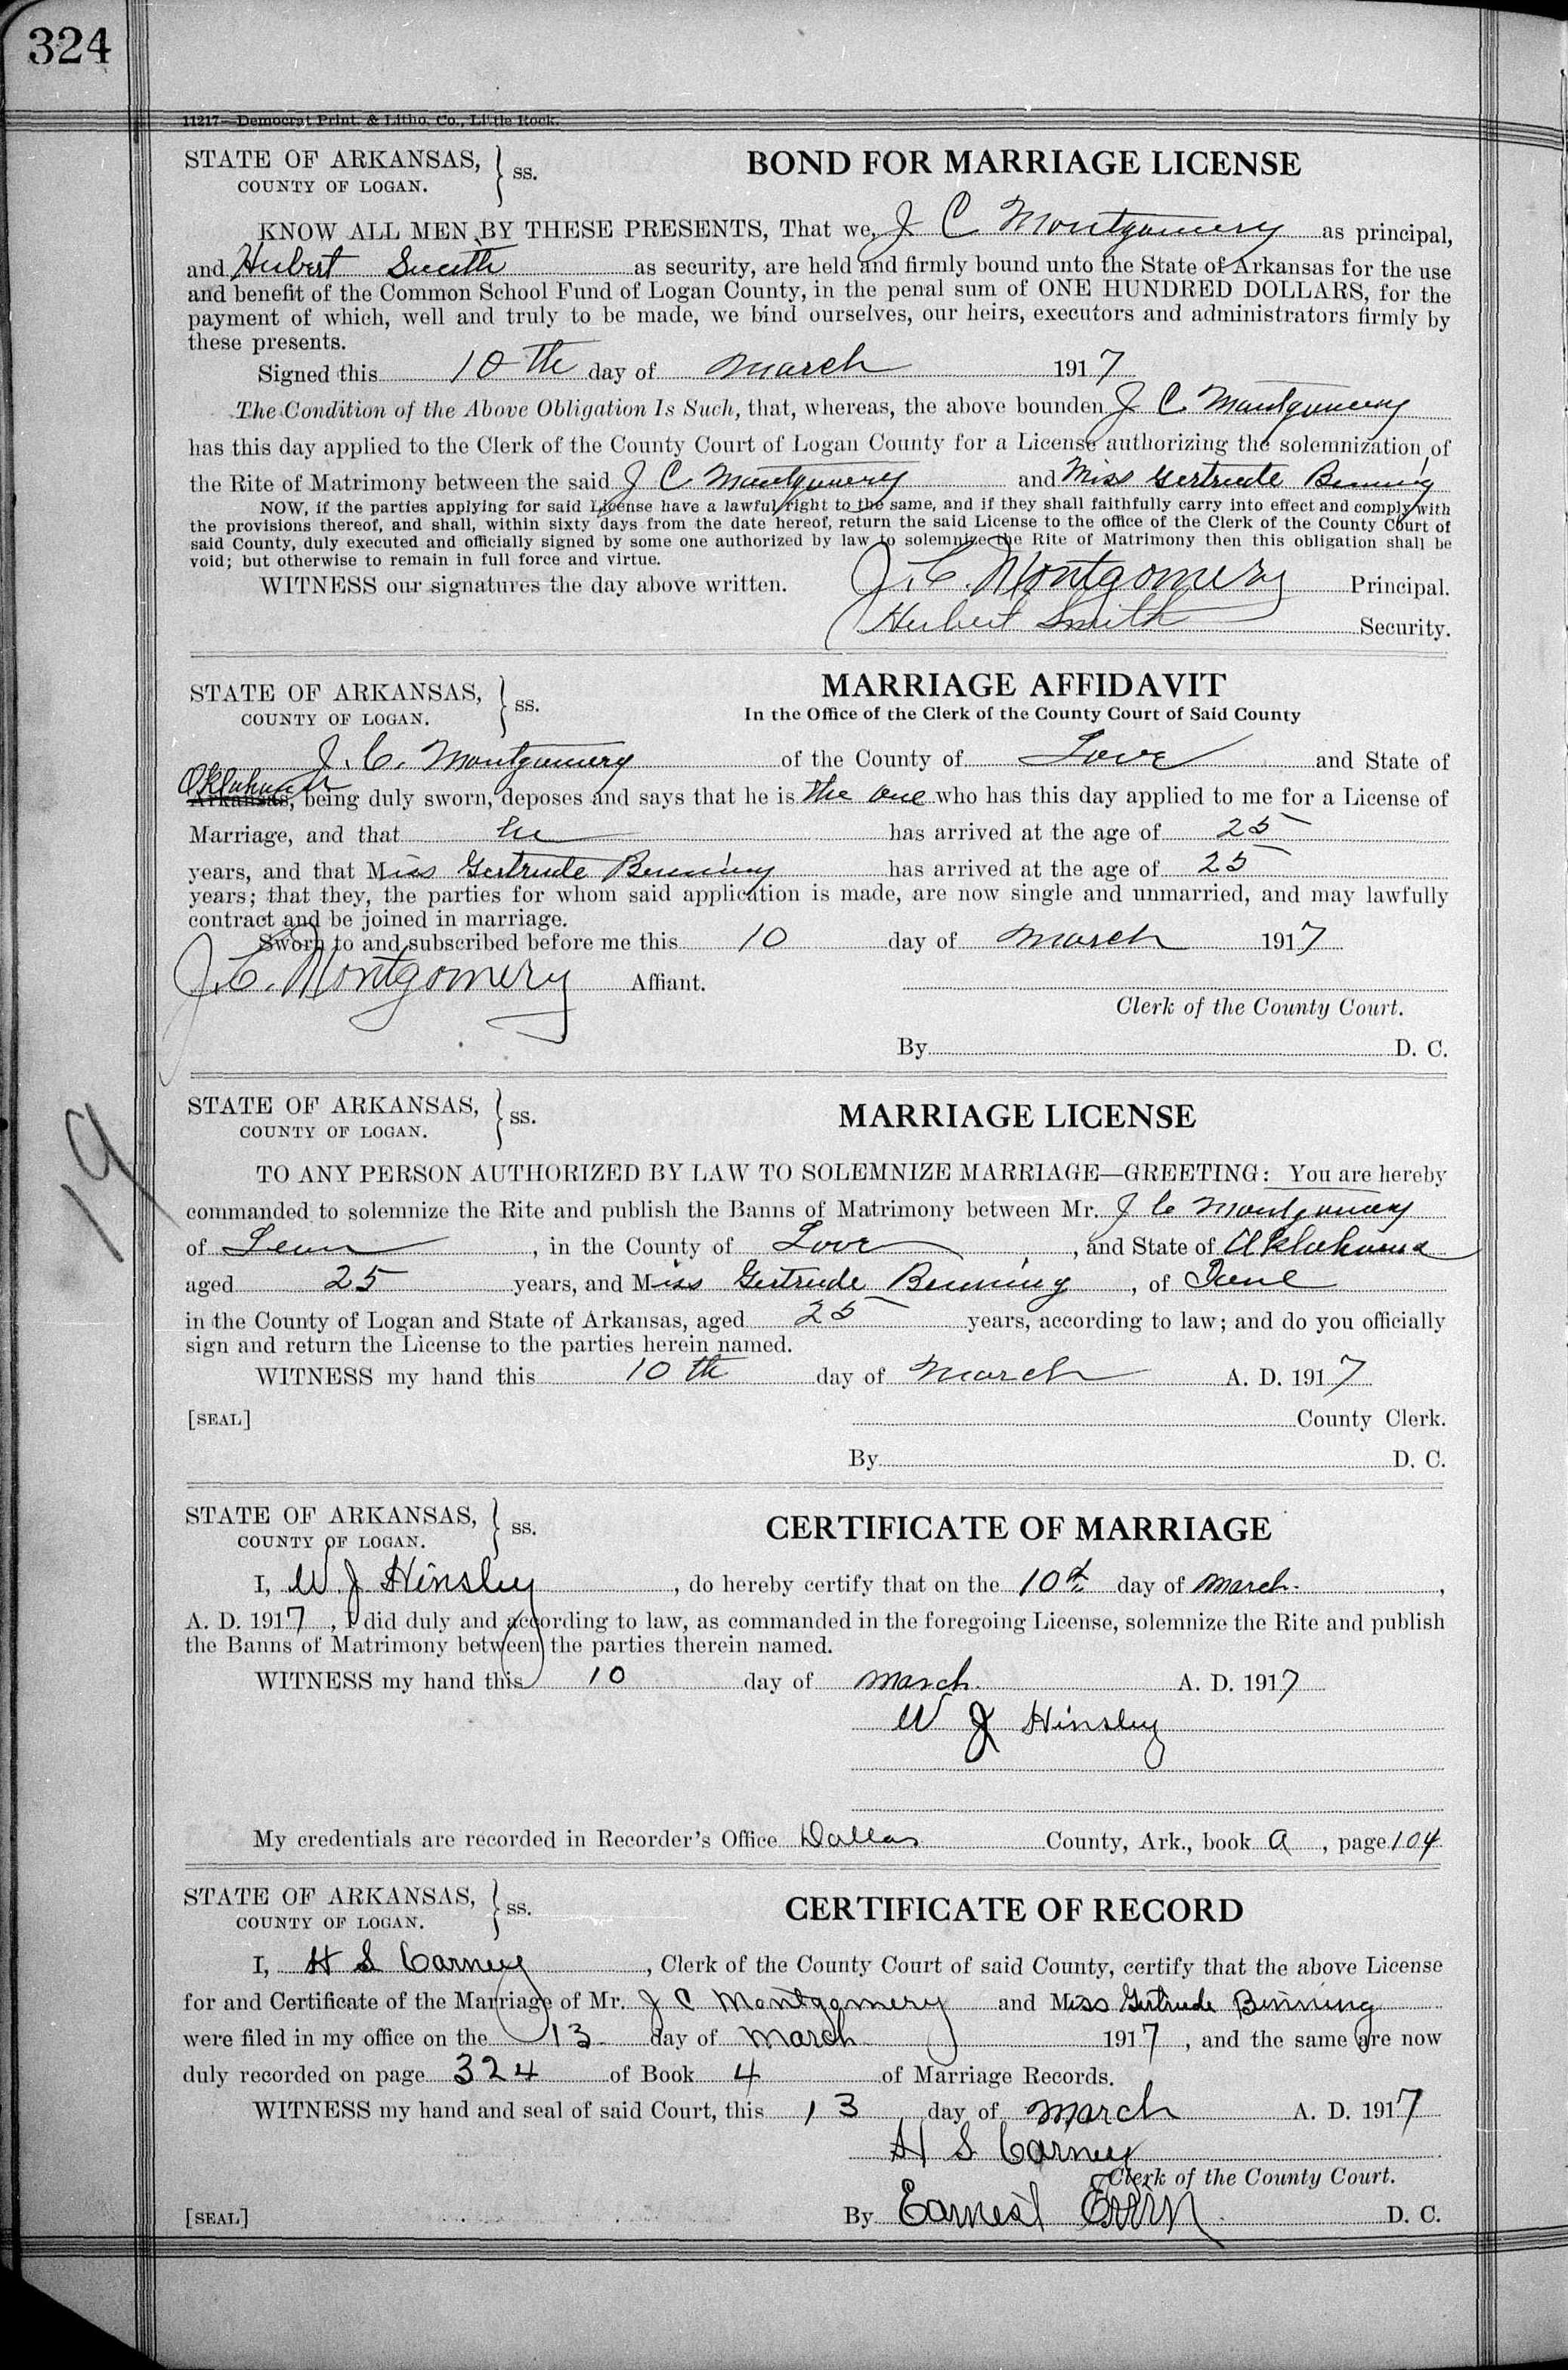 324
11217—Democrat Print. & Litho. Co., Little Rock.
STATE OF ARKANSAS, } ss.
COUNTY OF LOGAN.
BOND FOR MARRIAGE LICENSE
KNOW ALL MEN BY THESE PRESENTS, That we, J C Montgomery as principal,
and Hubert Smith as security, are held and firmly bound unto the State of Arkansas for the use
and benefit of the Common School Fund of Logan County, in the penal sum of ONE HUNDRED DOLLARS, for the
payment of which, well and truly to be made, we bind ourselves, our heirs, executors and administrators firmly by
these presents.
Signed this 10th day of March 1917
The Condition of the Above Obligation Is Such, that, whereas, the above bounden J C. Montgomery
has this day applied to the Clerk of the County Court of Logan County for a License authorizing the solemnization of
the Rite of Matrimony between the said J C. Montgomery and Miss Gertrude Binning
NOW, if the parties applying for said License have a lawful right to the same, and if they shall faithfully carry into effect and comply with
the provisions thereof, and shall, within sixty days from the date hereof, return the said License to the office of the Clerk of the County Court of
said County, duly executed and officially signed by some one authorized by law to solemnize the Rite of Matrimony then this obligation shall be
void; but otherwise to remain in full force and virtue.
WITNESS our signatures the day above written. J. C. Montgomery Principal.
Hubert Smith Security.
STATE OF ARKANSAS, } ss.
COUNTY OF LOGAN.
MARRIAGE AFFIDAVIT
In the Office of the Clerk of the County Court of Said County
J. C. Montgomery of the County of Love and State of
Oklahoma
Arkansas, being duly sworn, deposes and says that he is the one who has this day applied to me for a License of
Marriage, and that he has arrived at the age of 25
years, and that Miss Gertrude Binning has arrived at the age of 25
years; that they, the parties for whom said application is made, are now single and unmarried, and may lawfully
contract and be joined in marriage.
Sworn to and subscribed before me this 10 day of March 1917
J. C. Montgomery Affiant.
Clerk of the County Court.
By D. C.
19
STATE OF ARKANSAS, } ss.
COUNTY OF LOGAN.
MARRIAGE LICENSE
TO ANY PERSON AUTHORIZED BY LAW TO SOLEMNIZE MARRIAGE—GREETING: You are hereby
commanded to solemnize the Rite and publish the Banns of Matrimony between Mr. J C Montgomery
of Leon, in the County of Love, and State of Oklahoma
aged 25 years, and Miss Gertrude Binning, of
in the County of Logan and State of Arkansas, aged 25 years, according to law; and do you officially
sign and return the License to the parties herein named.
WITNESS my hand this 10th day of March A. D. 1917
[SEAL] County Clerk.
By D. C.
STATE OF ARKANSAS, } ss.
COUNTY OF LOGAN.
CERTIFICATE OF MARRIAGE
I, W. J Hinsley, do hereby certify that on the 10th day of March.,
A. D. 1917, I did duly and according to law, as commanded in the foregoing License, solemnize the Rite and publish
the Banns of Matrimony between the parties therein named.
WITNESS my hand this 10 day of March. A. D. 1917
W J Hinsley
My credentials are recorded in Recorder's Office Dallas County, Ark., book A, page 104
STATE OF ARKANSAS, } ss.
COUNTY OF LOGAN.
CERTIFICATE OF RECORD
I, H S Carney, Clerk of the County Court of said County, certify that the above License
for and Certificate of the Marriage of Mr. J C Montgomery and Miss Gertrude Binning
were filed in my office on the 13 day of March 1917, and the same are now
duly recorded on page 324 of Book 4 of Marriage Records.
WITNESS my hand and seal of said Court, this 13 day of March A. D. 1917
H S Carney
Clerk of the County Court.
[SEAL] By Earnest D. C.